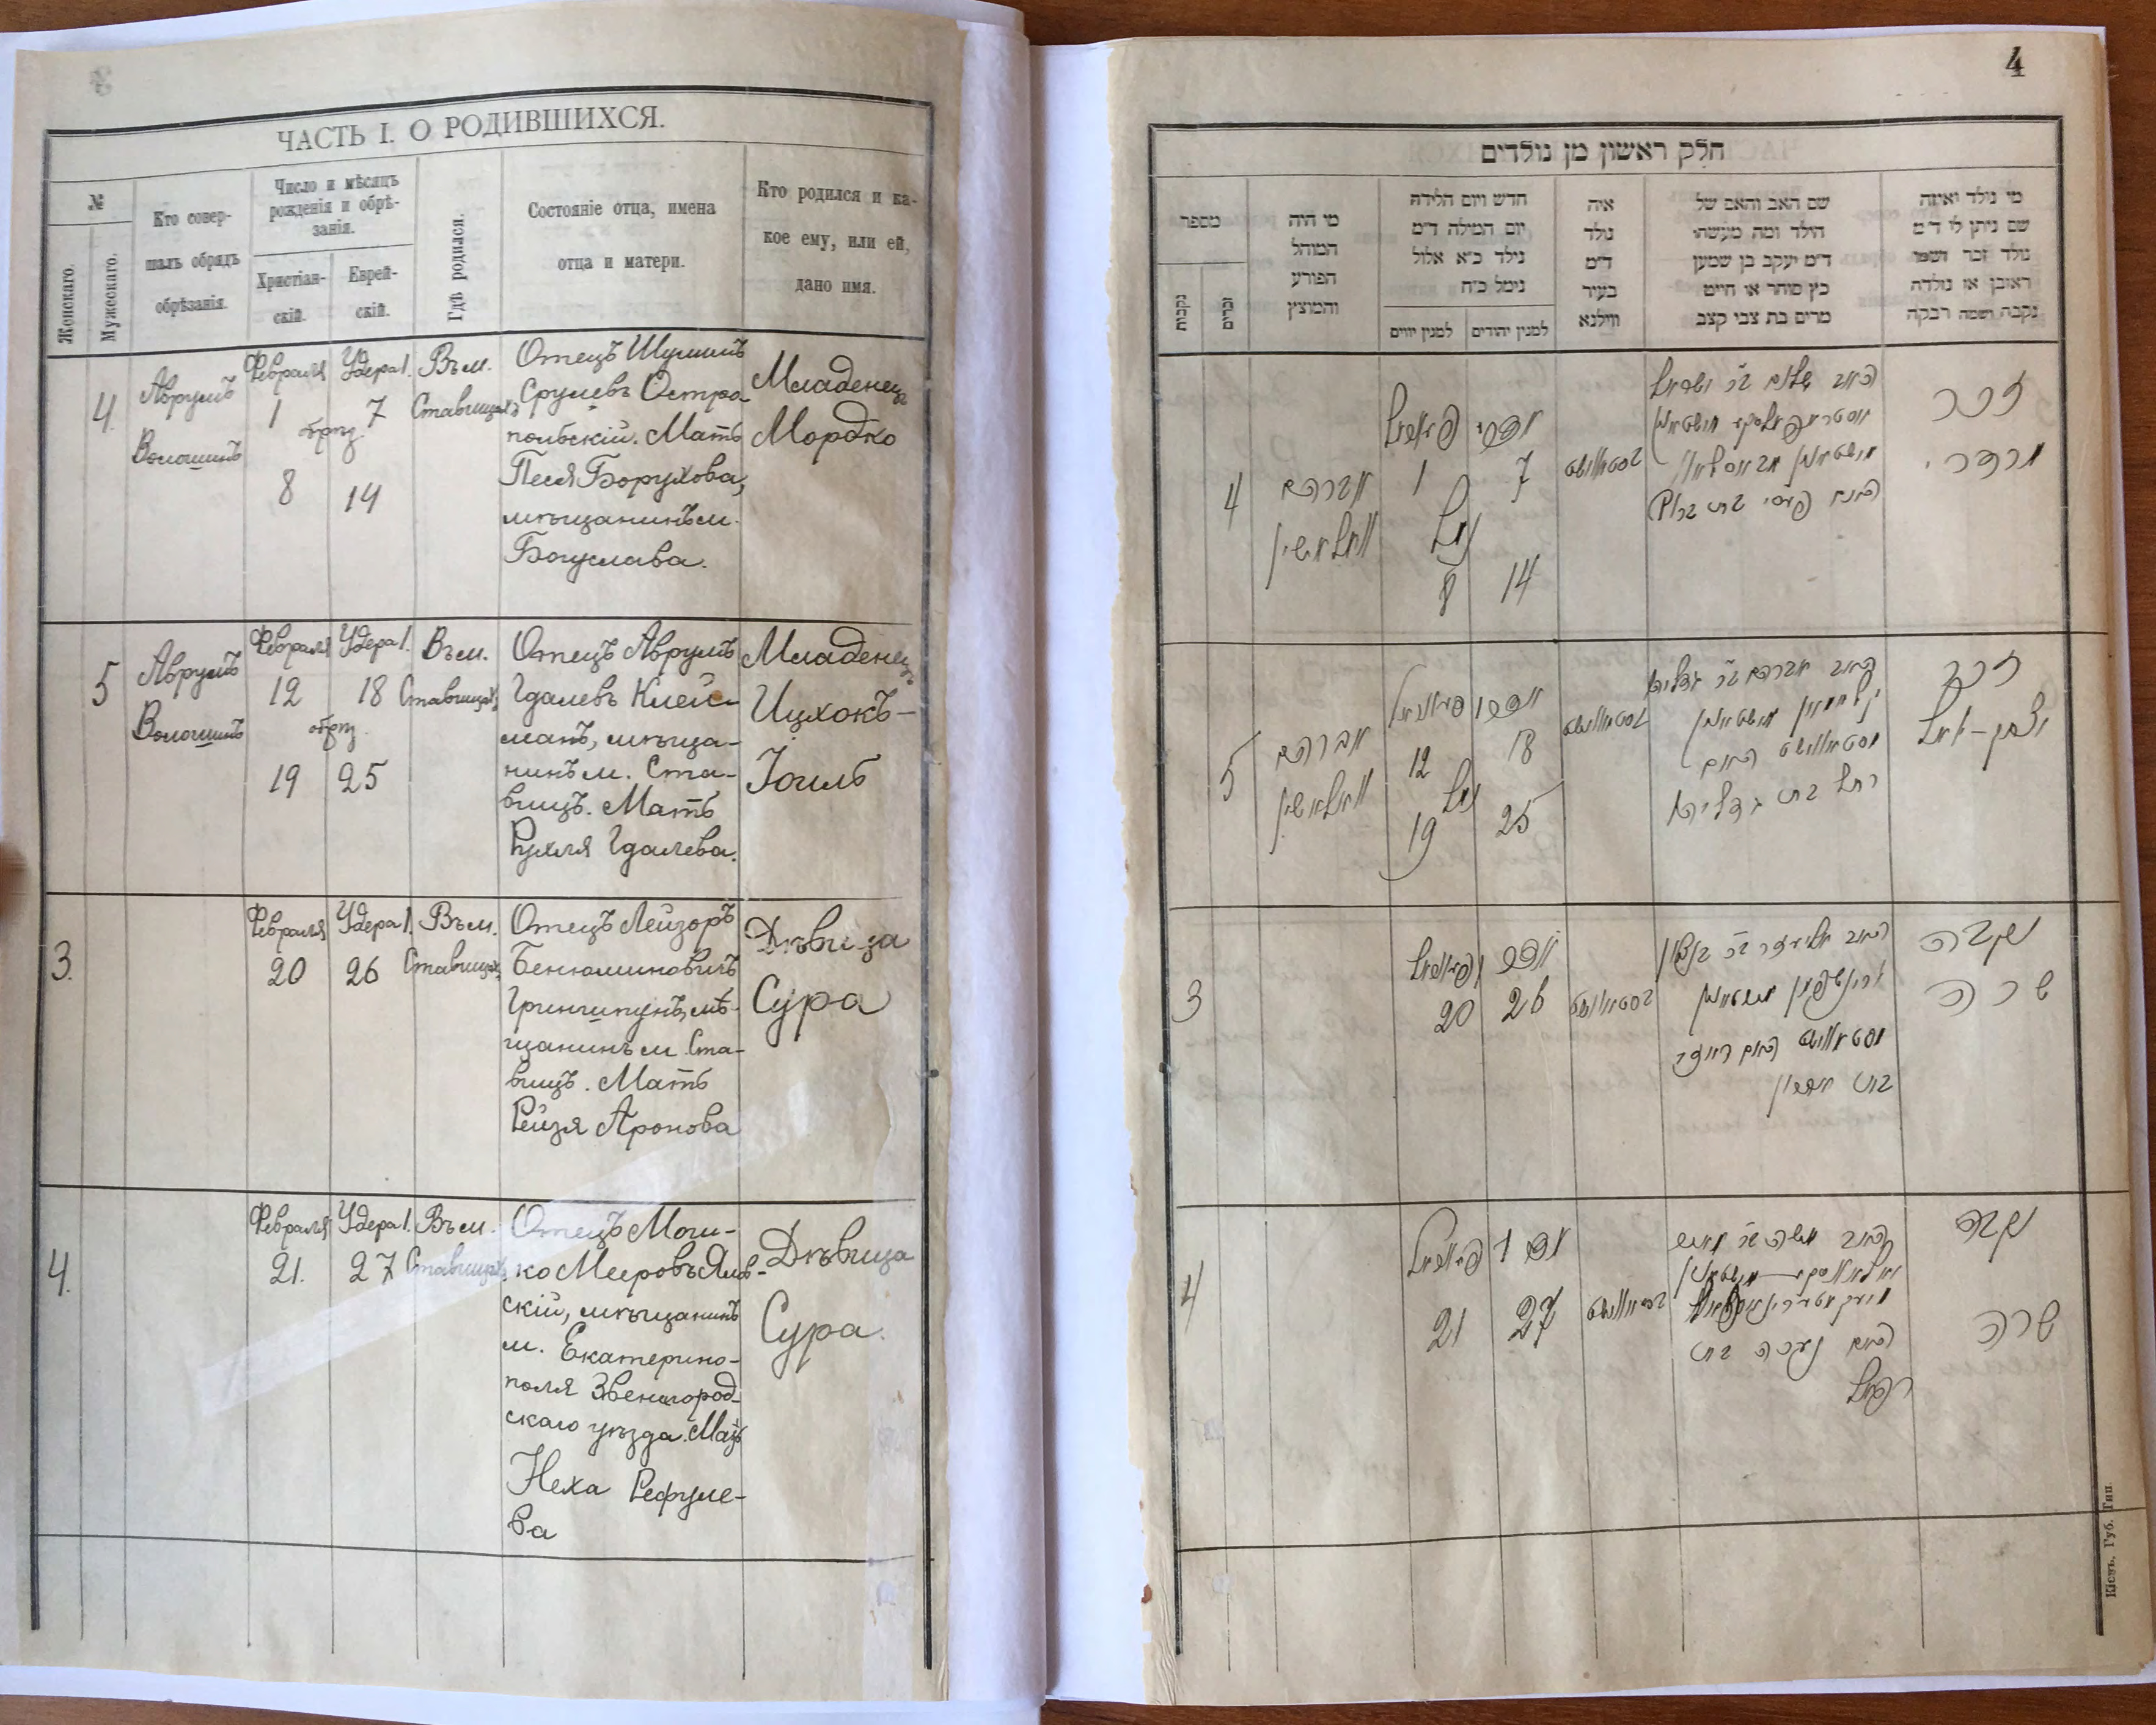 ЧАСТЬ I. О РОДИВШИХСЯ.
№
Женскаго.
Мужескаго.
Кто совер-
шалъ обрядъ
обрѣзанія.
Число и мѣсяцъ
рожденія и обрѣ-
занія.
Христіан-
скій.
Еврей-
скій.
Гдѣ родился.
Состояніе отца, имена
отца и матери.
Кто родился и ка-
кое ему, или ей,
дано имя.
4.
Аврумъ
Волошинъ
Февраля
1
обрѣз.
8
Удера I.
7
14
Въ м.
Ставищахъ
Отецъ Шулимъ
Срулевъ Остро
польскій. Мать
Песя Борухова,
мѣщанинъ м.
Богуслава.
Младенецъ
Мордко
5
Аврумъ
Волошинъ
Февраля
12
обрѣз.
19
Удера I.
18
25
Въ м.
Ставищахъ
Отецъ Аврумъ
Гдалевъ Клей-
манъ, мѣща-
нинъ м. Ста-
вищъ. Мать
Рухля Гдалева.
Младенецъ
Ицхокъ-
Іоиль
3.
Февраля
20
Удера I.
26
Въ м.
Ставищахъ
Отецъ Лейзоръ
Бенюминовичъ
Гриншпунъ, мѣ-
щанинъ м. Ста-
вищъ. Мать
Рейзя Аронова
Дѣвица
Сура
4.
Февраля
21.
Удера I.
27
Въ м.
Ставищахъ
Отецъ Мош-
ко Мееровъ
скій, мѣщанинъ
м. Екатерино-
поля Звенигород-
скаго уѣзда. Мать
Неха Рефуле-
ва
Дѣвица
Сура.
4
חלק ראשון מן נולדים
מי נולד ואיזה
שם ניתן לו ד״מ
נולד זכר ושמו
ראובן או נולדה
נקבה ושמה רבקה
שם האב והאם של
הילד ומה מעשהו
ד״מ יעקב בן שמעון
כץ סוחר או חייט
מרים בת צבי קצב
איה
נולד
ד״מ
בעיר
ווילנא
חדש ויום הלידה
יום המילה ד״מ
נולד כ״א אלול
נימל כ״ח
למנין יהודים
למנין יוונים
מי היה
המוהל
הפורע
והמוצץ
מספר
זכרים
נקבות
זכר
מרדכי
האב שלום ב״ר ישראל
7
1
נמל
14
8
אברהם
וואלאשין
4
זכר
יצחק-יואל
האב אברהם ב״ר גדליה
רחל בת גדליה
18
12
נמל
25
19
אברהם
וואלאשין
5
נקבה
שרה
האב אליעזר ב״ר
בת אהרון
26
20
3
נקבה
שרה
האב משה ב״ר מאיר
האם נעכה בת
רפאל
27
21
4
Кіевъ. Губ. Тип.